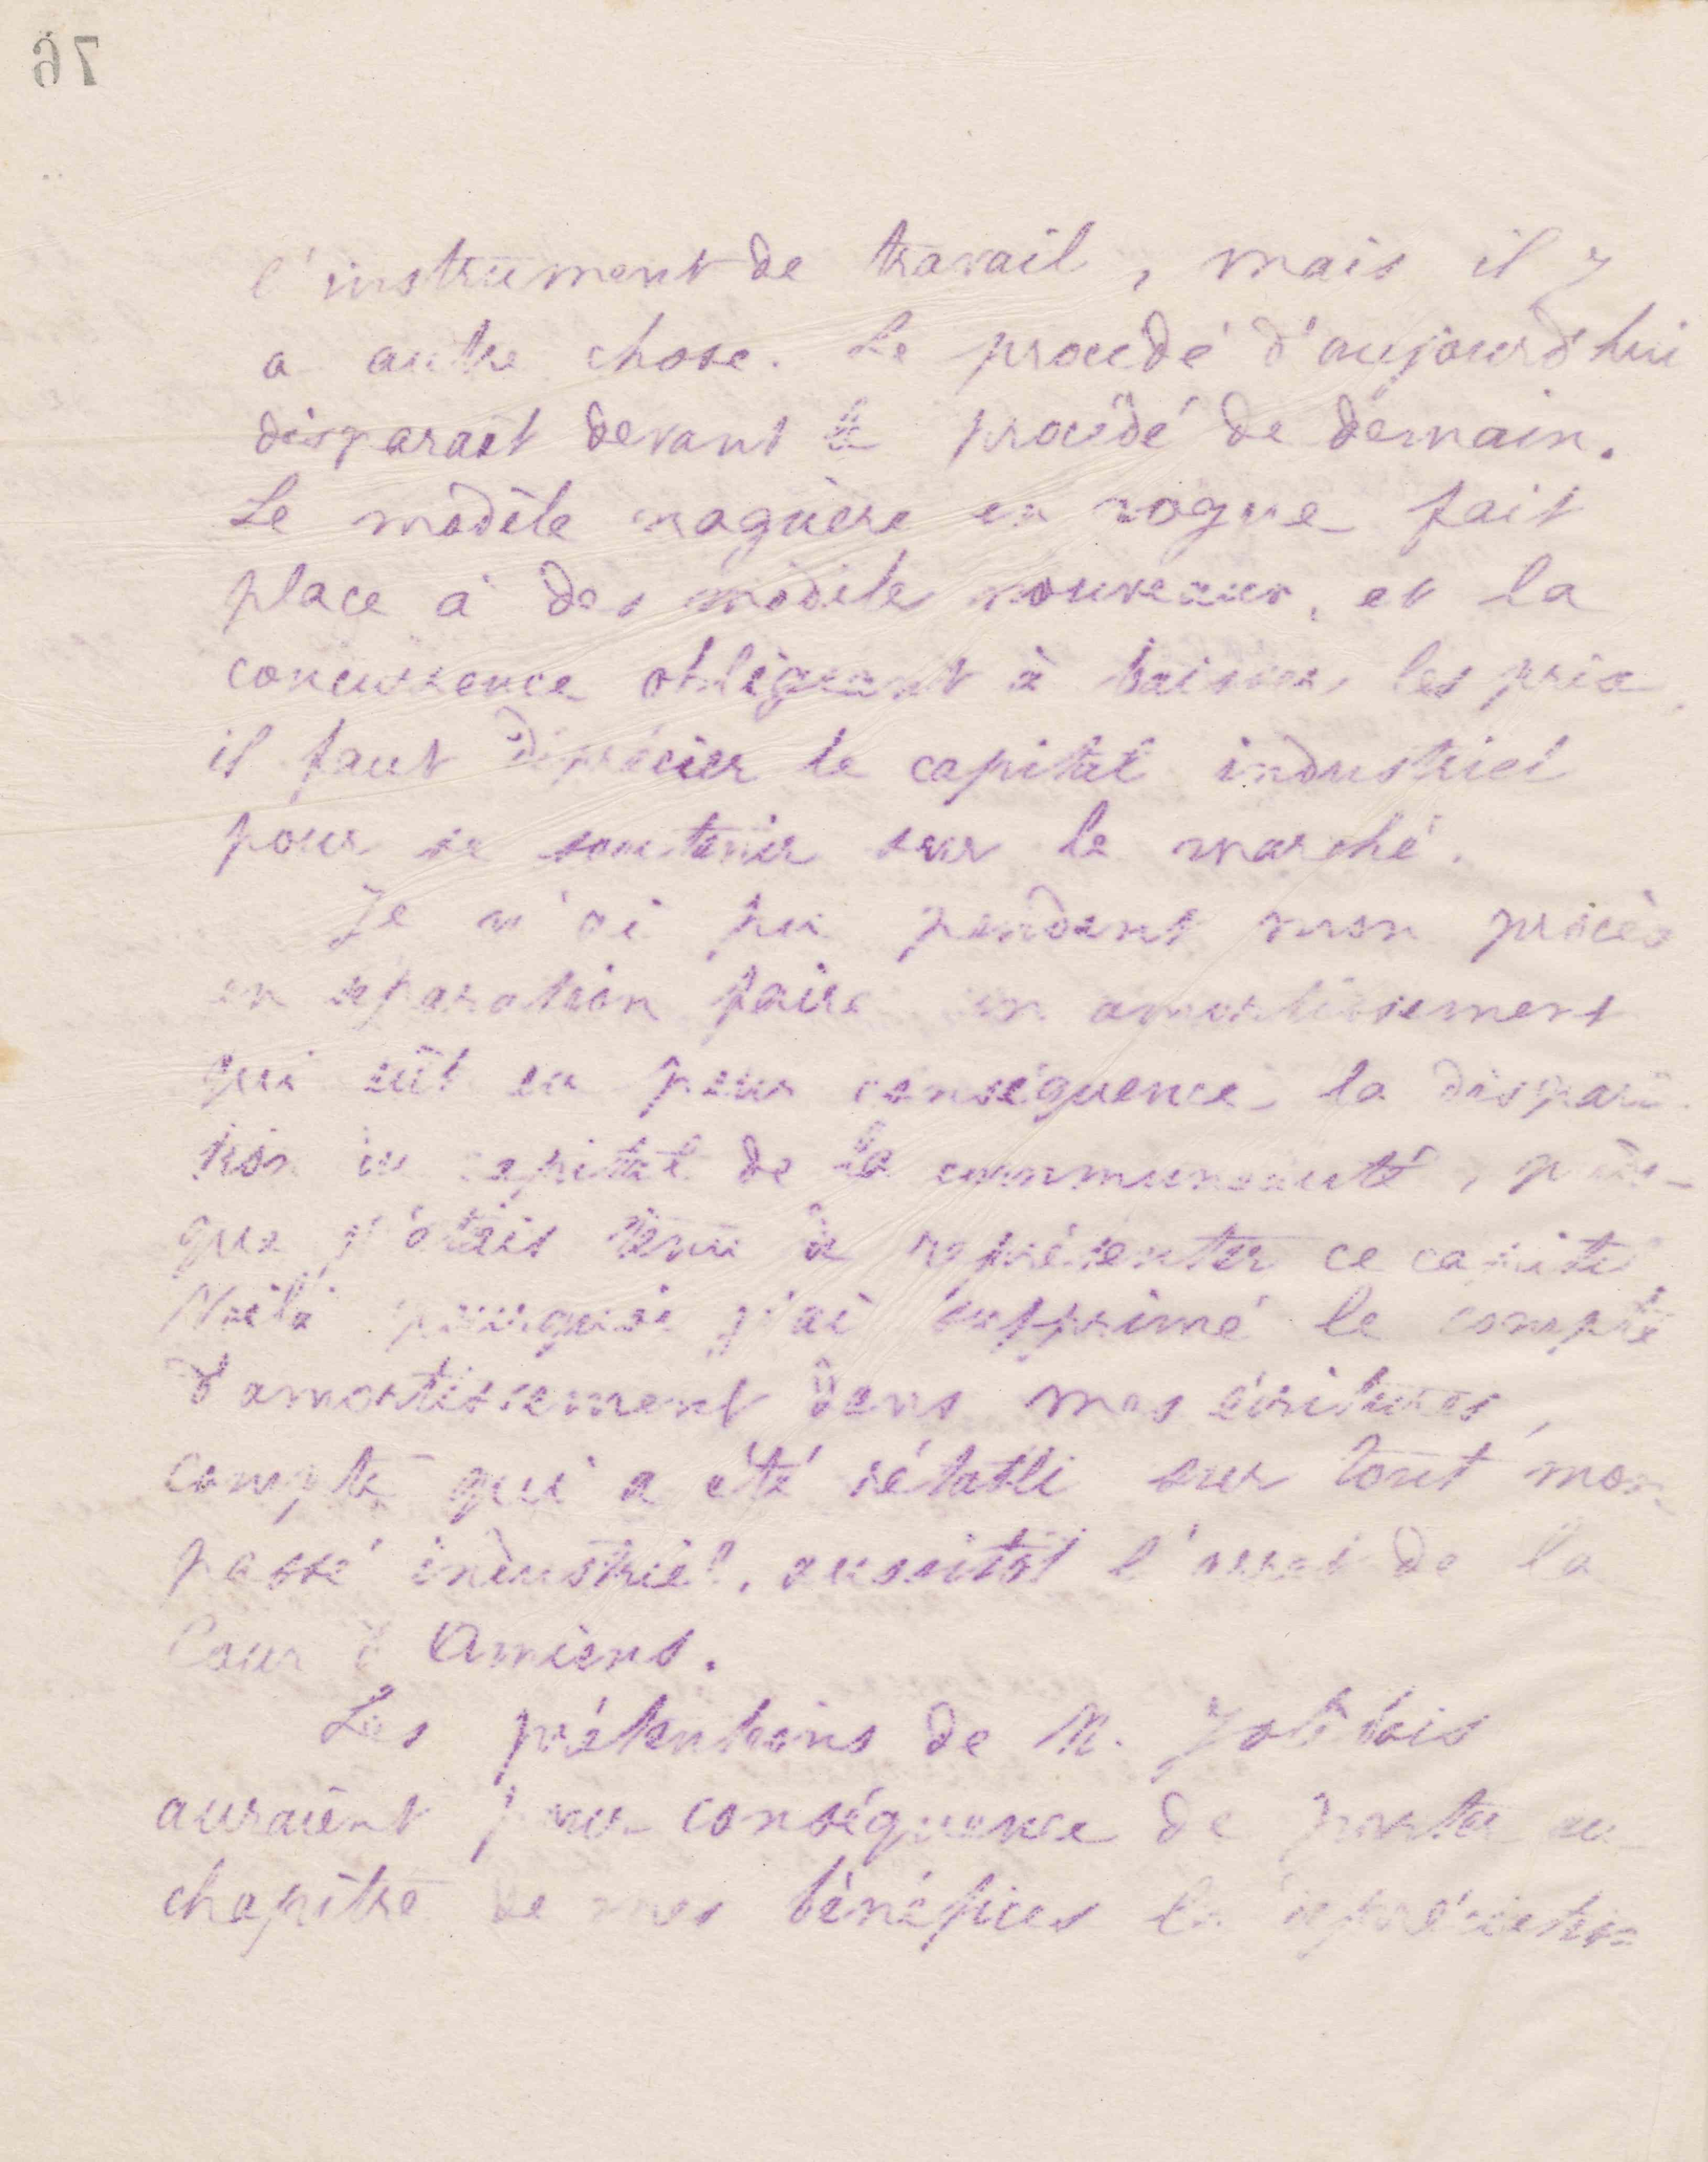 76
l'instrument de travail, mais il y
a autre chose. Le procédé d'aujourd'hui
disparait devant le procédé de demain.
Le modèle naguère en vogue fait
place à des modèles nouveaux, et la
concurrence obligeant à baisser les prix,
il faut déprécier le capital industriel
pour se soutenir sur le marché.
Je n'ai pu pendant mon procès
en séparation faire un amortissement
qui eût eu pour conséquence la dispari-
tion du capital de la communauté, puis-
que j'étais tenu à représenter ce capital.
Voilà pourquoi j'ai supprimé le compte
d'amortissement dans mes écritures,
compte qui a été rétabli sur tout mon
passé industriel, aussitôt l'arrêt de la
Cour d'Amiens.
Les prétentions de M. Jolibois
auraient pour conséquence de porter au
chapitre de mes bénéfices la dépréciation